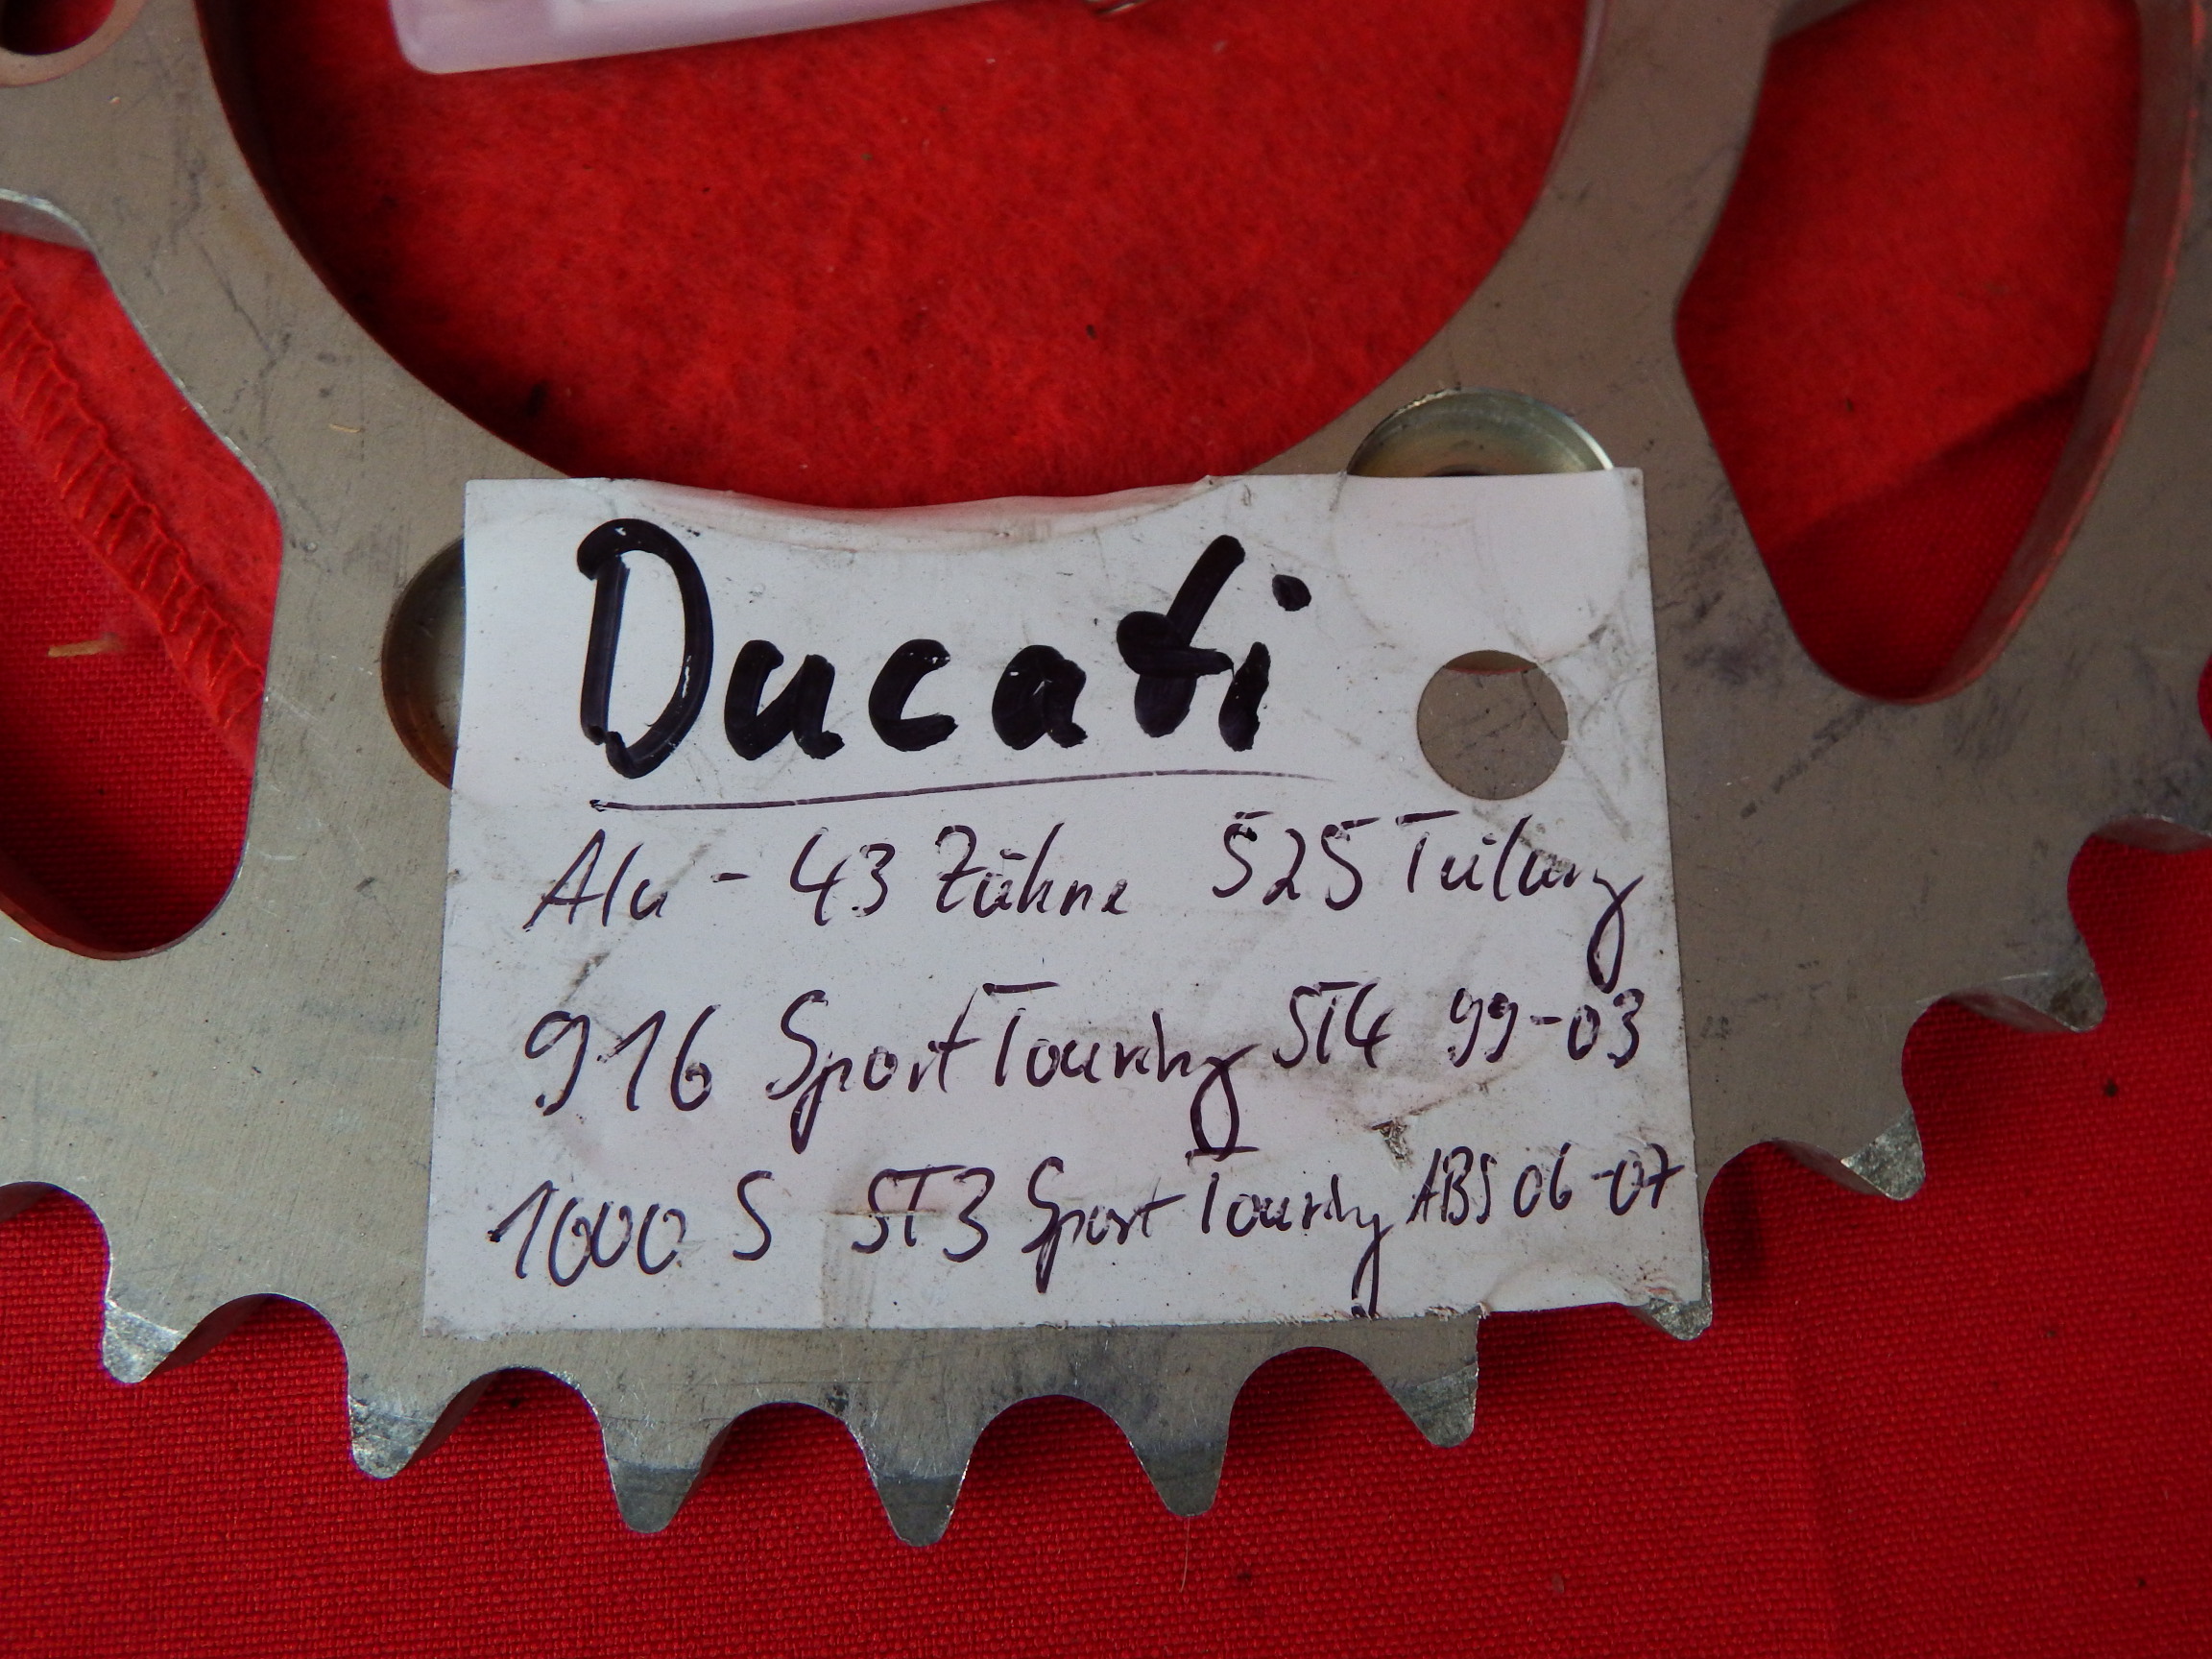 Ducati
Alu - 43 Zähne 525 Teilung
916 Sport Touring ST4 99-03
1000 S ST3 Sport Touring ABS 06-07